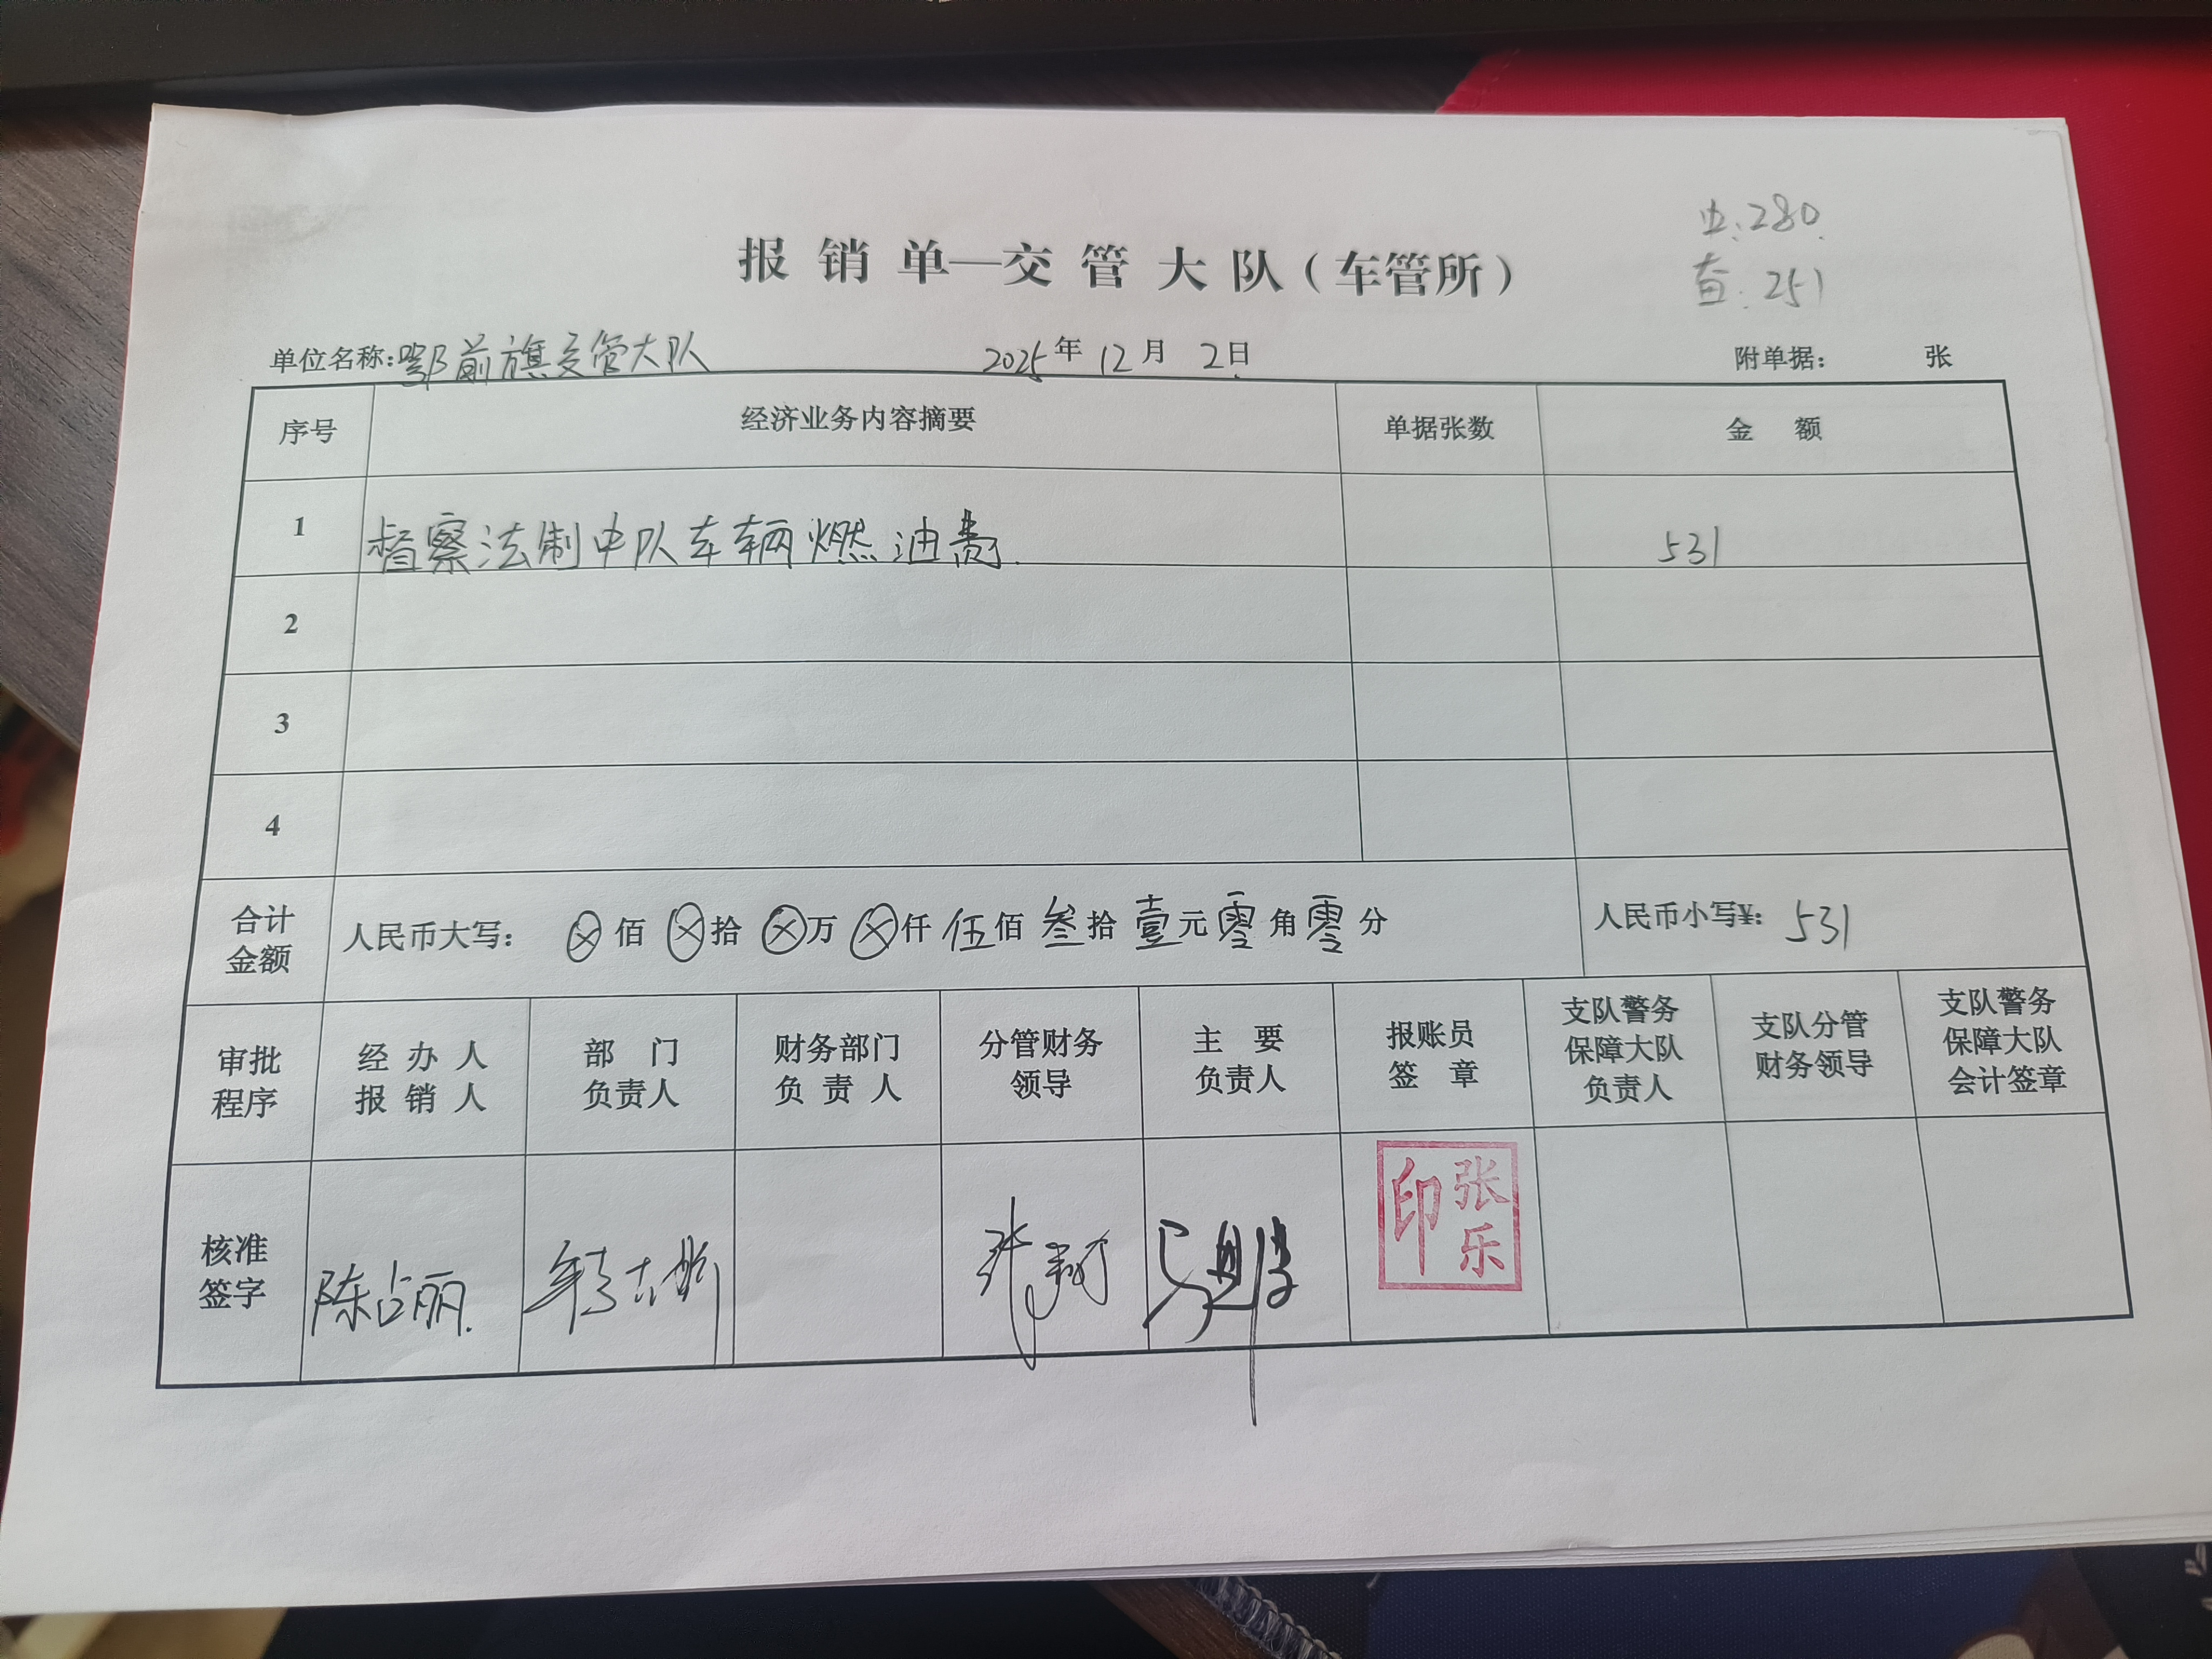 报销单—交管大队（车管所）
:280
:251
单位名称:鄂前旗交管大队 2025年12月2日 附单据： 张
序号 经济业务内容摘要 单据张数 金额
1 督察法制中队车辆燃油费. 531
2
3
4
合计金额 人民币大写： ⊗佰⊗拾⊗万⊗仟伍佰叁拾壹元零角零分 人民币小写¥: 531
审批程序 经办人报销人 部门负责人 财务部门负责人 分管财务领导 主要负责人 报账员签章 支队警务保障大队负责人 支队分管财务领导 支队警务保障大队会计签章
核准签字 陈占丽. 张 张乐印